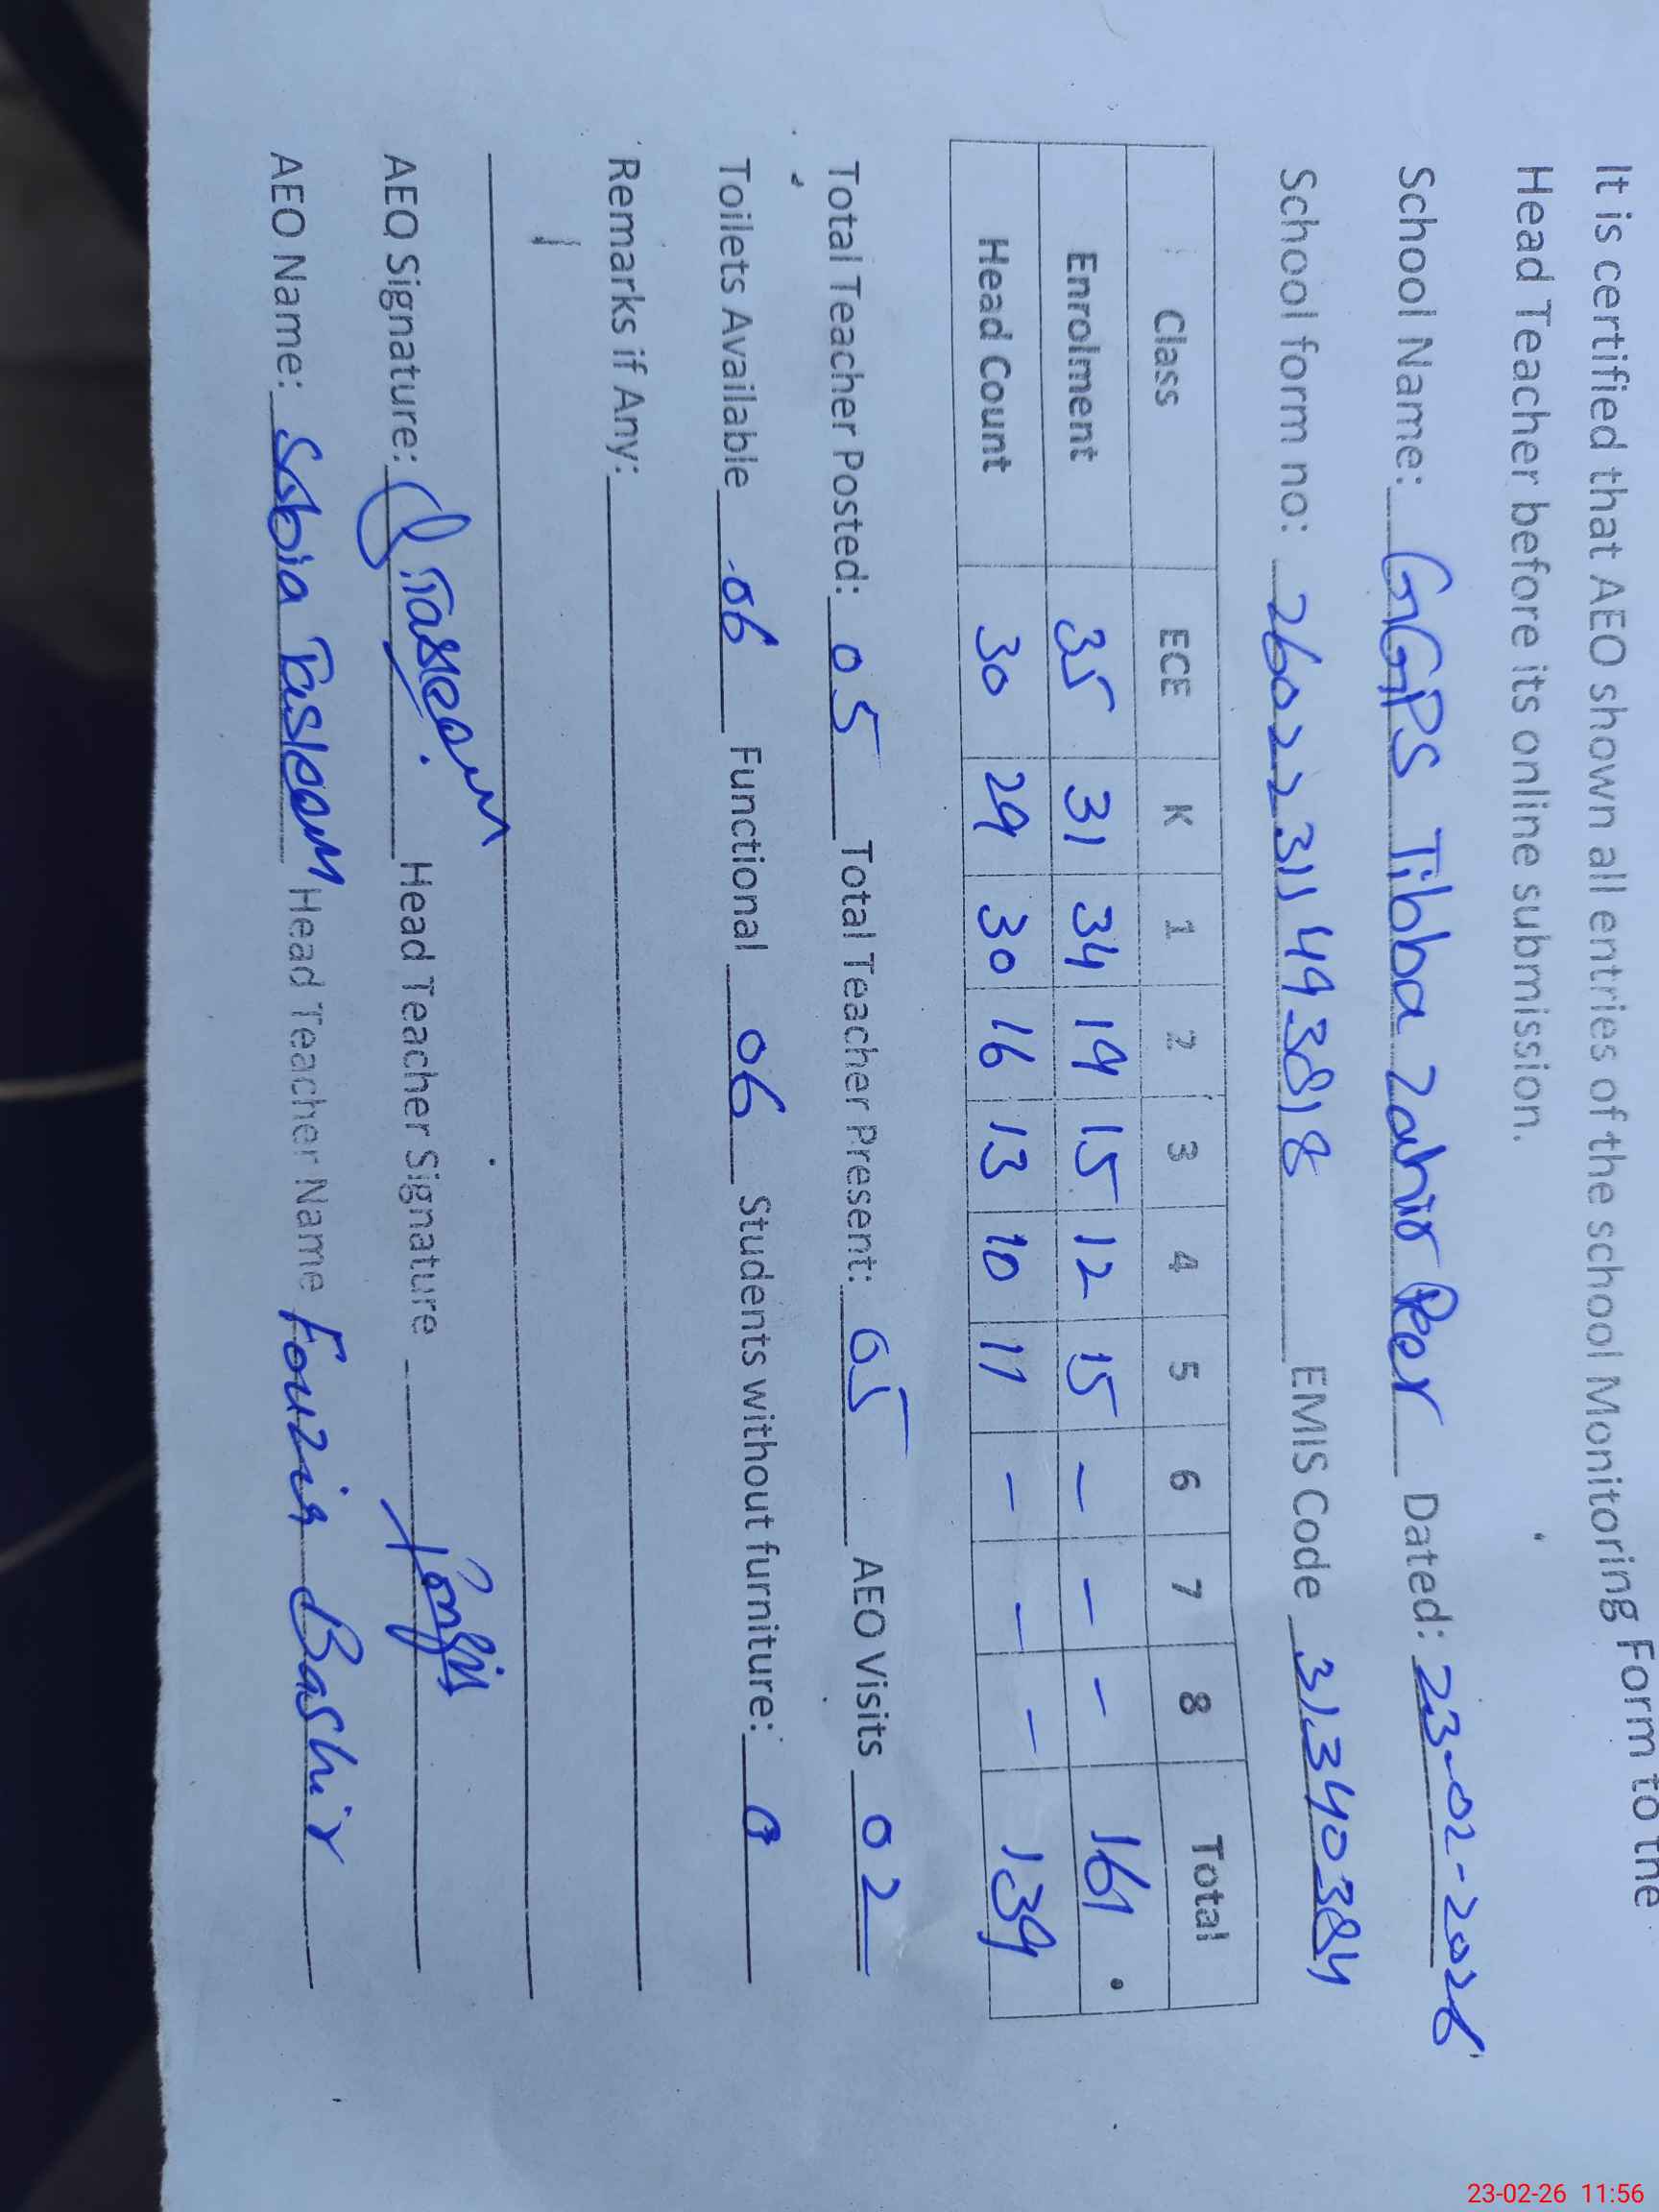 It is certified that AEO shown all entries of the school Monitoring Form to the
Head Teacher before its online submission.
School Name: GGPS Tibba Zahir Peer Dated: 23-02-2026
School form no: 26022311493818 EMIS Code 31340384
Class ECE K 1 2 3 4 5 6 7 8 Total
Enrolment 35 31 34 19 15 12 15 - - - 161
Head Count 30 29 30 16 13 10 11 - - - 139
Total Teacher Posted: 05 Total Teacher Present: 05 AEO Visits 02
Toilets Available 06 Functional 06 Students without furniture: 0
Remarks if Any:
AEO Signature: Tasleem Head Teacher Signature
AEO Name: Sobia Tasleem Head Teacher Name Fouzia Bashir
23-02-26 11:56